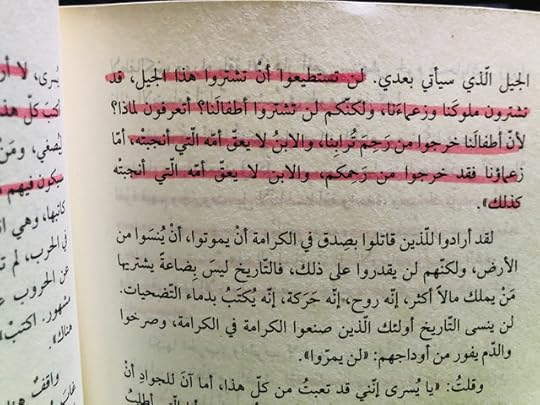 الجيل الّذي سيأتي بعدي. لن تستطيعوا أنْ تشتروا هذا الجيل، قد
تشترون ملوكَنا وزعماءَنا، ولكنّكم لن تشتروا أطفالَنا؟ أتعرفون لماذا؟
لأنّ أطفالَنا خرجوا من رَحِمَ تُرابِنا، والابنُ لا يعقّ أمّه الّتي أنجبتْه. أمّا
زعماؤنا فقد خرجوا من رَحِمِكم، والابن لا يعقّ أمّه الّتي أنجبتْه
كذلك».
لقد أرادوا للّذين قاتلوا بصِدق في الكرامة أنْ يموتوا، أنْ يُنسَوا من
الأرض، ولكنّهم لن يقدروا على ذلك، فالتّاريخ ليسَ بِضاعةً يشتريها
مَنْ يملك مالاً أكثر، إنّه روح، إنّه حَرَكة، إنّه يُكتَبُ بدماء التّضحيات.
لن ينسى التّاريخ أولئك الّذين صنعوا الكرامة في الكرامة، وصرخوا
والدّم يفور من أوداجهم: «لن يمرّوا».
وقلتُ: «يا يُسرى إنّني قد تعبتُ من كلّ هذا، أما آنَ للجوادِ أنْ
يُسرى، لا أر
اكتبْ كلّ هذ
المُصغي، ومَنْ
سيكون فيهم م
كاتبها، وهي ا
في الحرب، لم ت
عن الحروب ع
مشهور. اكتبْ،
هناك».
واقفتُ ه